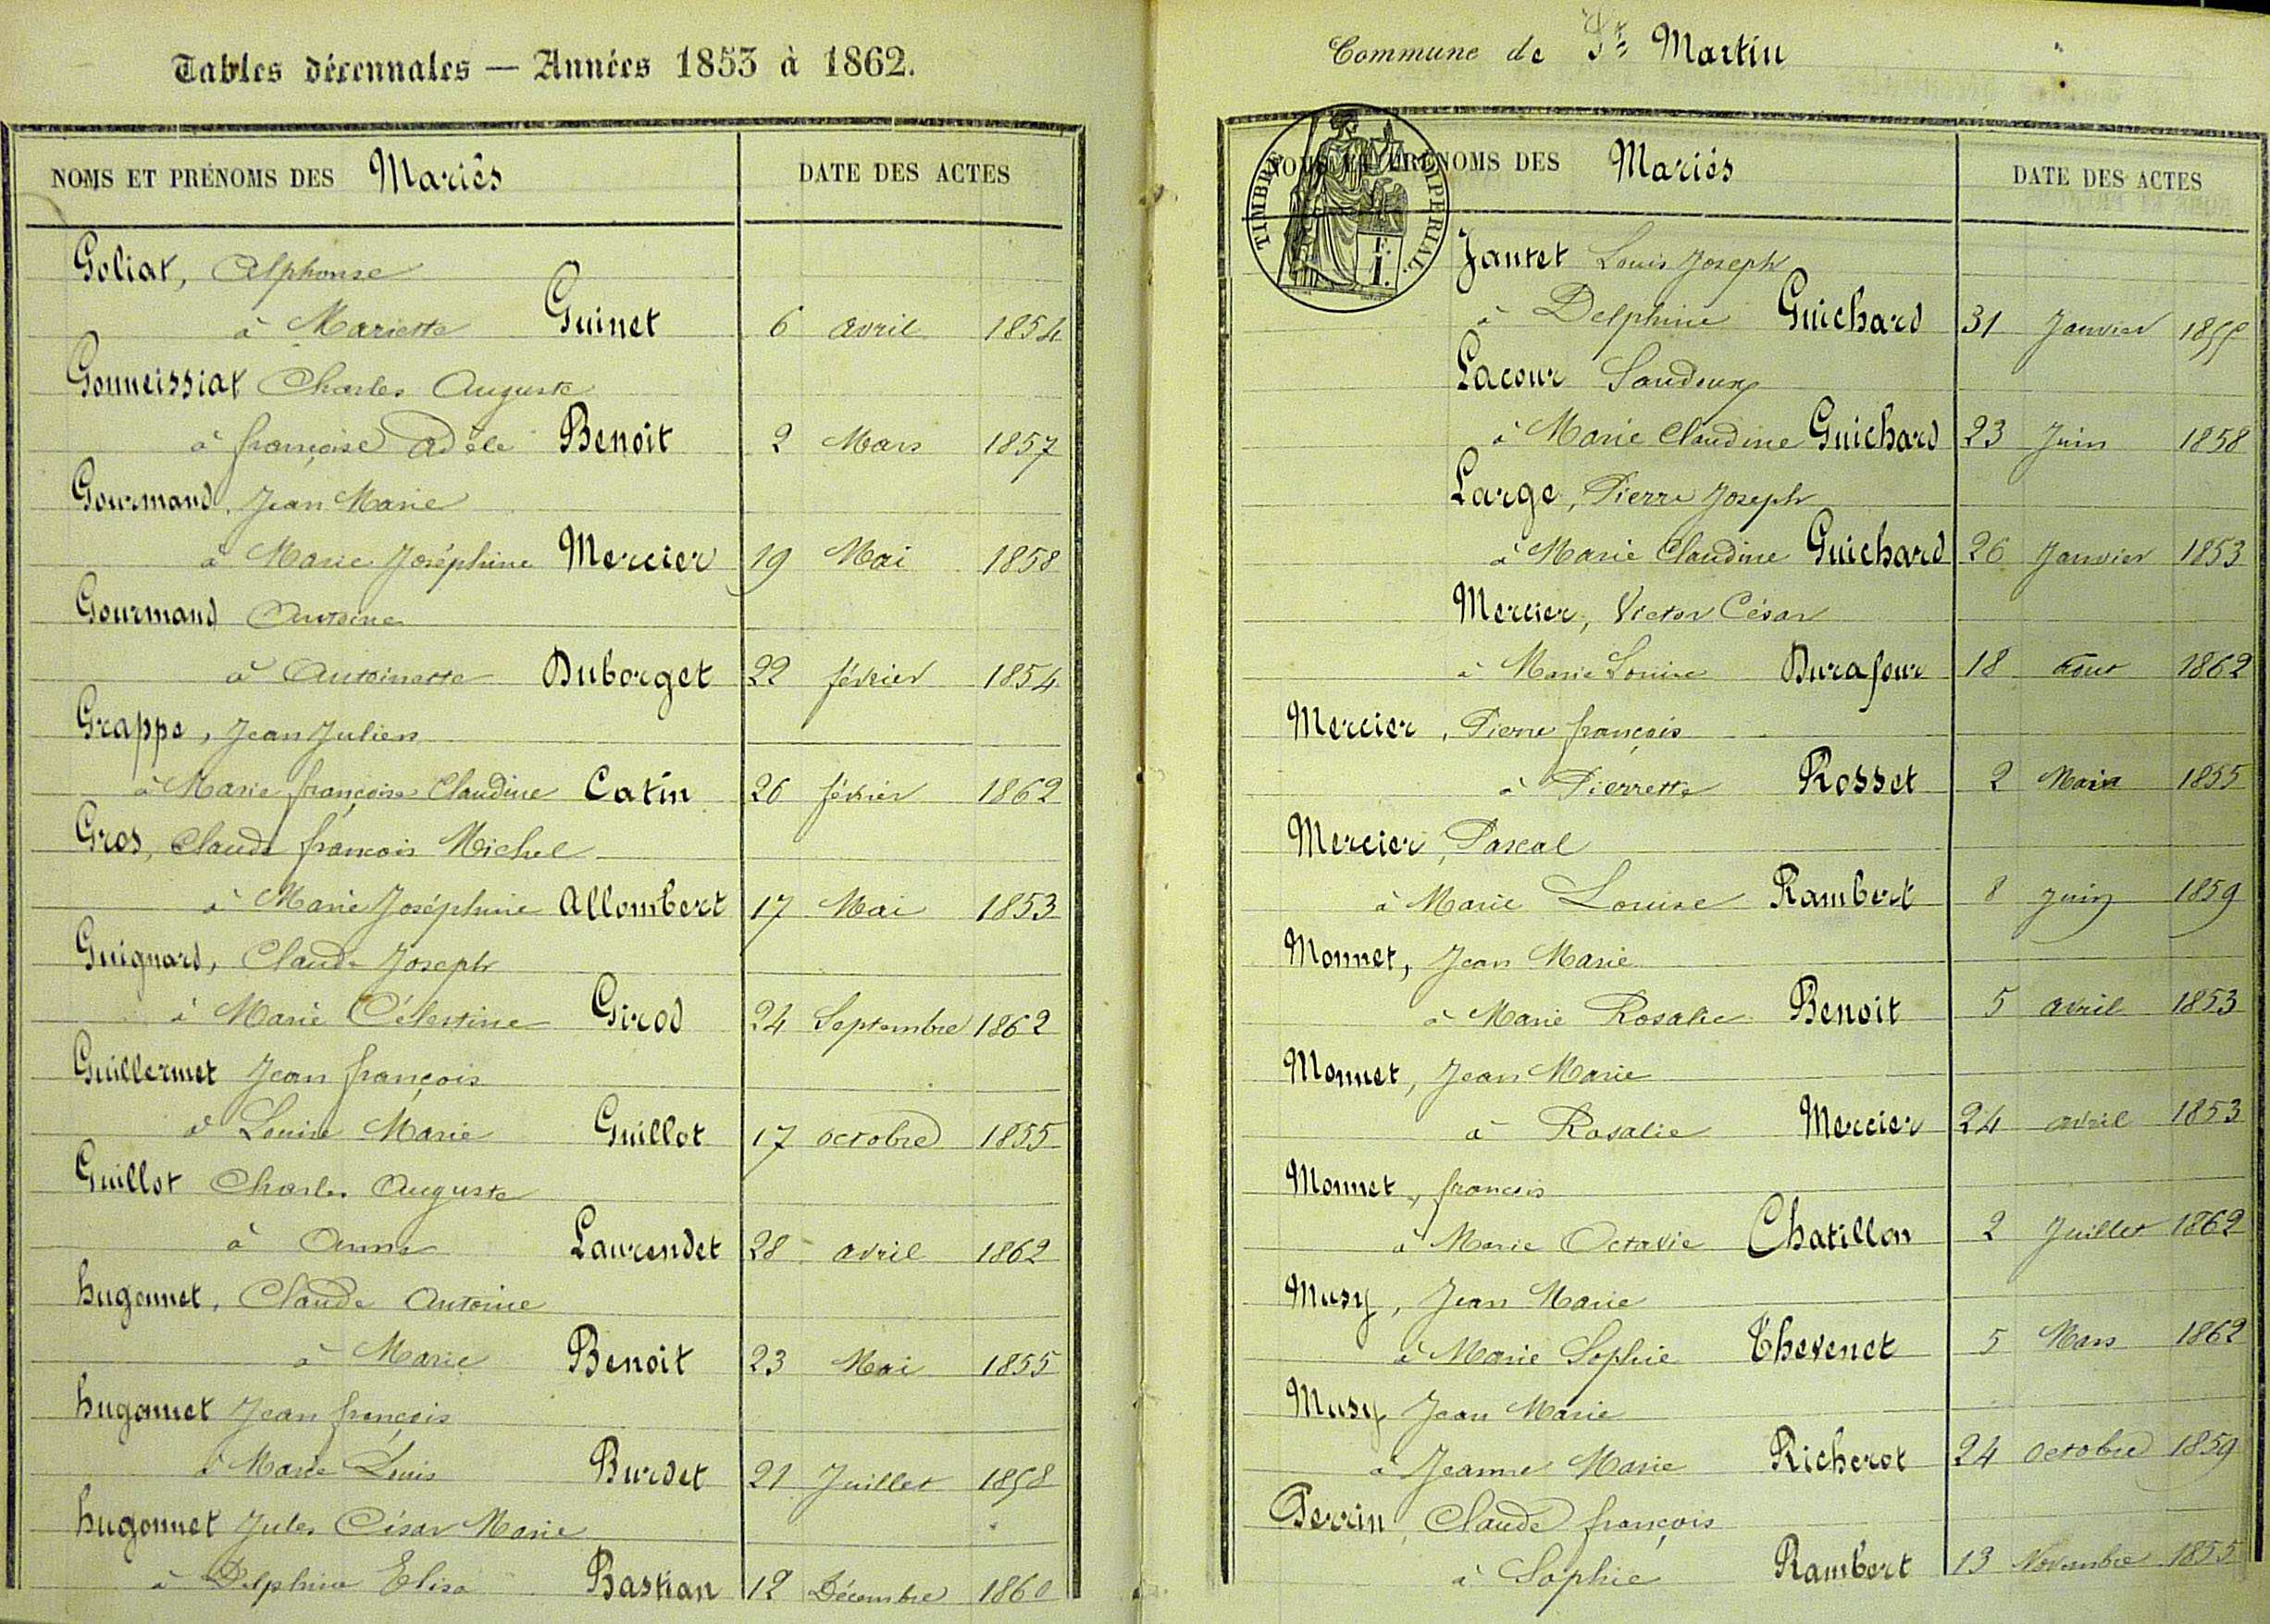 Tables décennales — Années 1853 à 1862.
NOMS ET PRÉNOMS DES Mariés DATE DES ACTES
Goliat, Alphonse
à Mariette Guinet 6 avril 1854
Gonneissiat Charles Auguste
à françoise adèle Benoit 2 Mars 1857
Gourmand, Jean Marie
à Marie Joséphine Mercier 19 Mai 1858
Gourmand Antoine
à Antoinette Duborget 22 février 1854
Grappe, Jean Julien
à Marie françoise Claudine Catin 26 février 1862
Gros, Claude françois Michel
à Marie Joséphine Allombert 17 Mai 1853
Guignard, Claude Joseph
à Marie Célestine Girod 24 Septembre 1862
Guillermet Jean françois
à Louise Marie Guillot 17 octobre 1855
Guillot Charles Auguste
à Anna Laurendet 28 avril 1862
hugonnet, Claude Antoine
à Marie Benoit 23 Mai 1855
hugonnet Jean françois
à Marie Louis Burdet 21 Juillet 1858
hugonnet Jules César Marie
à Delphine Elisa Bastian 12 Décembre 1860
Commune de St Martin
NOMS ET PRÉNOMS DES Mariés DATE DES ACTES
TIMBRE IMPERIAL
F. 1.
Jantet Louis Joseph
à Delphine Guichard 31 Janvier 1855
Lacour
à Marie Claudine Guichard 23 Juin 1858
Large, Pierre Joseph
à Marie Claudine Guichard 26 Janvier 1853
Mercier, Victor César
à Marie Louise Durafour 18 Aout 1862
Mercier, Pierre françois
à Pierrette Rosset 2 1855
Mercier, Pascal
à Marie Louise Rambert 8 Juin 1859
Monnet, Jean Marie
à Marie Rosalie Benoit 5 avril 1853
Monnet, Jean Marie
à Rosalie Mercier 24 avril 1853
Monnet, françois
à Marie Octavie Chatillon 2 Juillet 1862
Musy, Jean Marie
à Marie Sophie Thevenet 5 Mars 1862
Musy Jean Marie
à Jeanne Marie Richerot 24 octobre 1859
Perrin, Claude françois
à Sophie Rambert 13 Novembre 1855